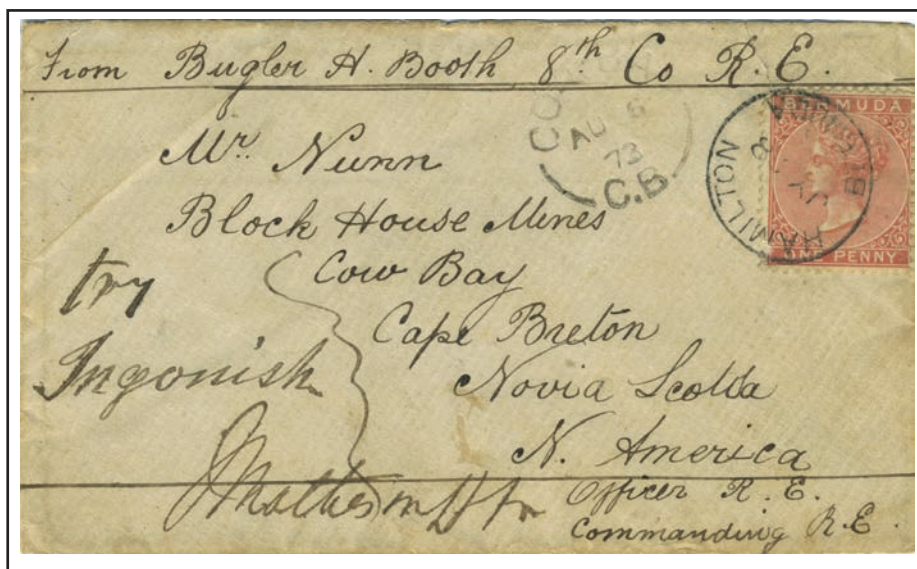 From Bugler H. Booth 8th Co R.E.
Mr. Nunn
Block House Mines
Cow Bay
Cape Breton
Novia Scotda
N. America
try
Ingonish
Officer R. E.
Commanding R.E.
AU 6
73
C.B
HAMILTON
BERMUDA
BERMUDA
ONE PENNY